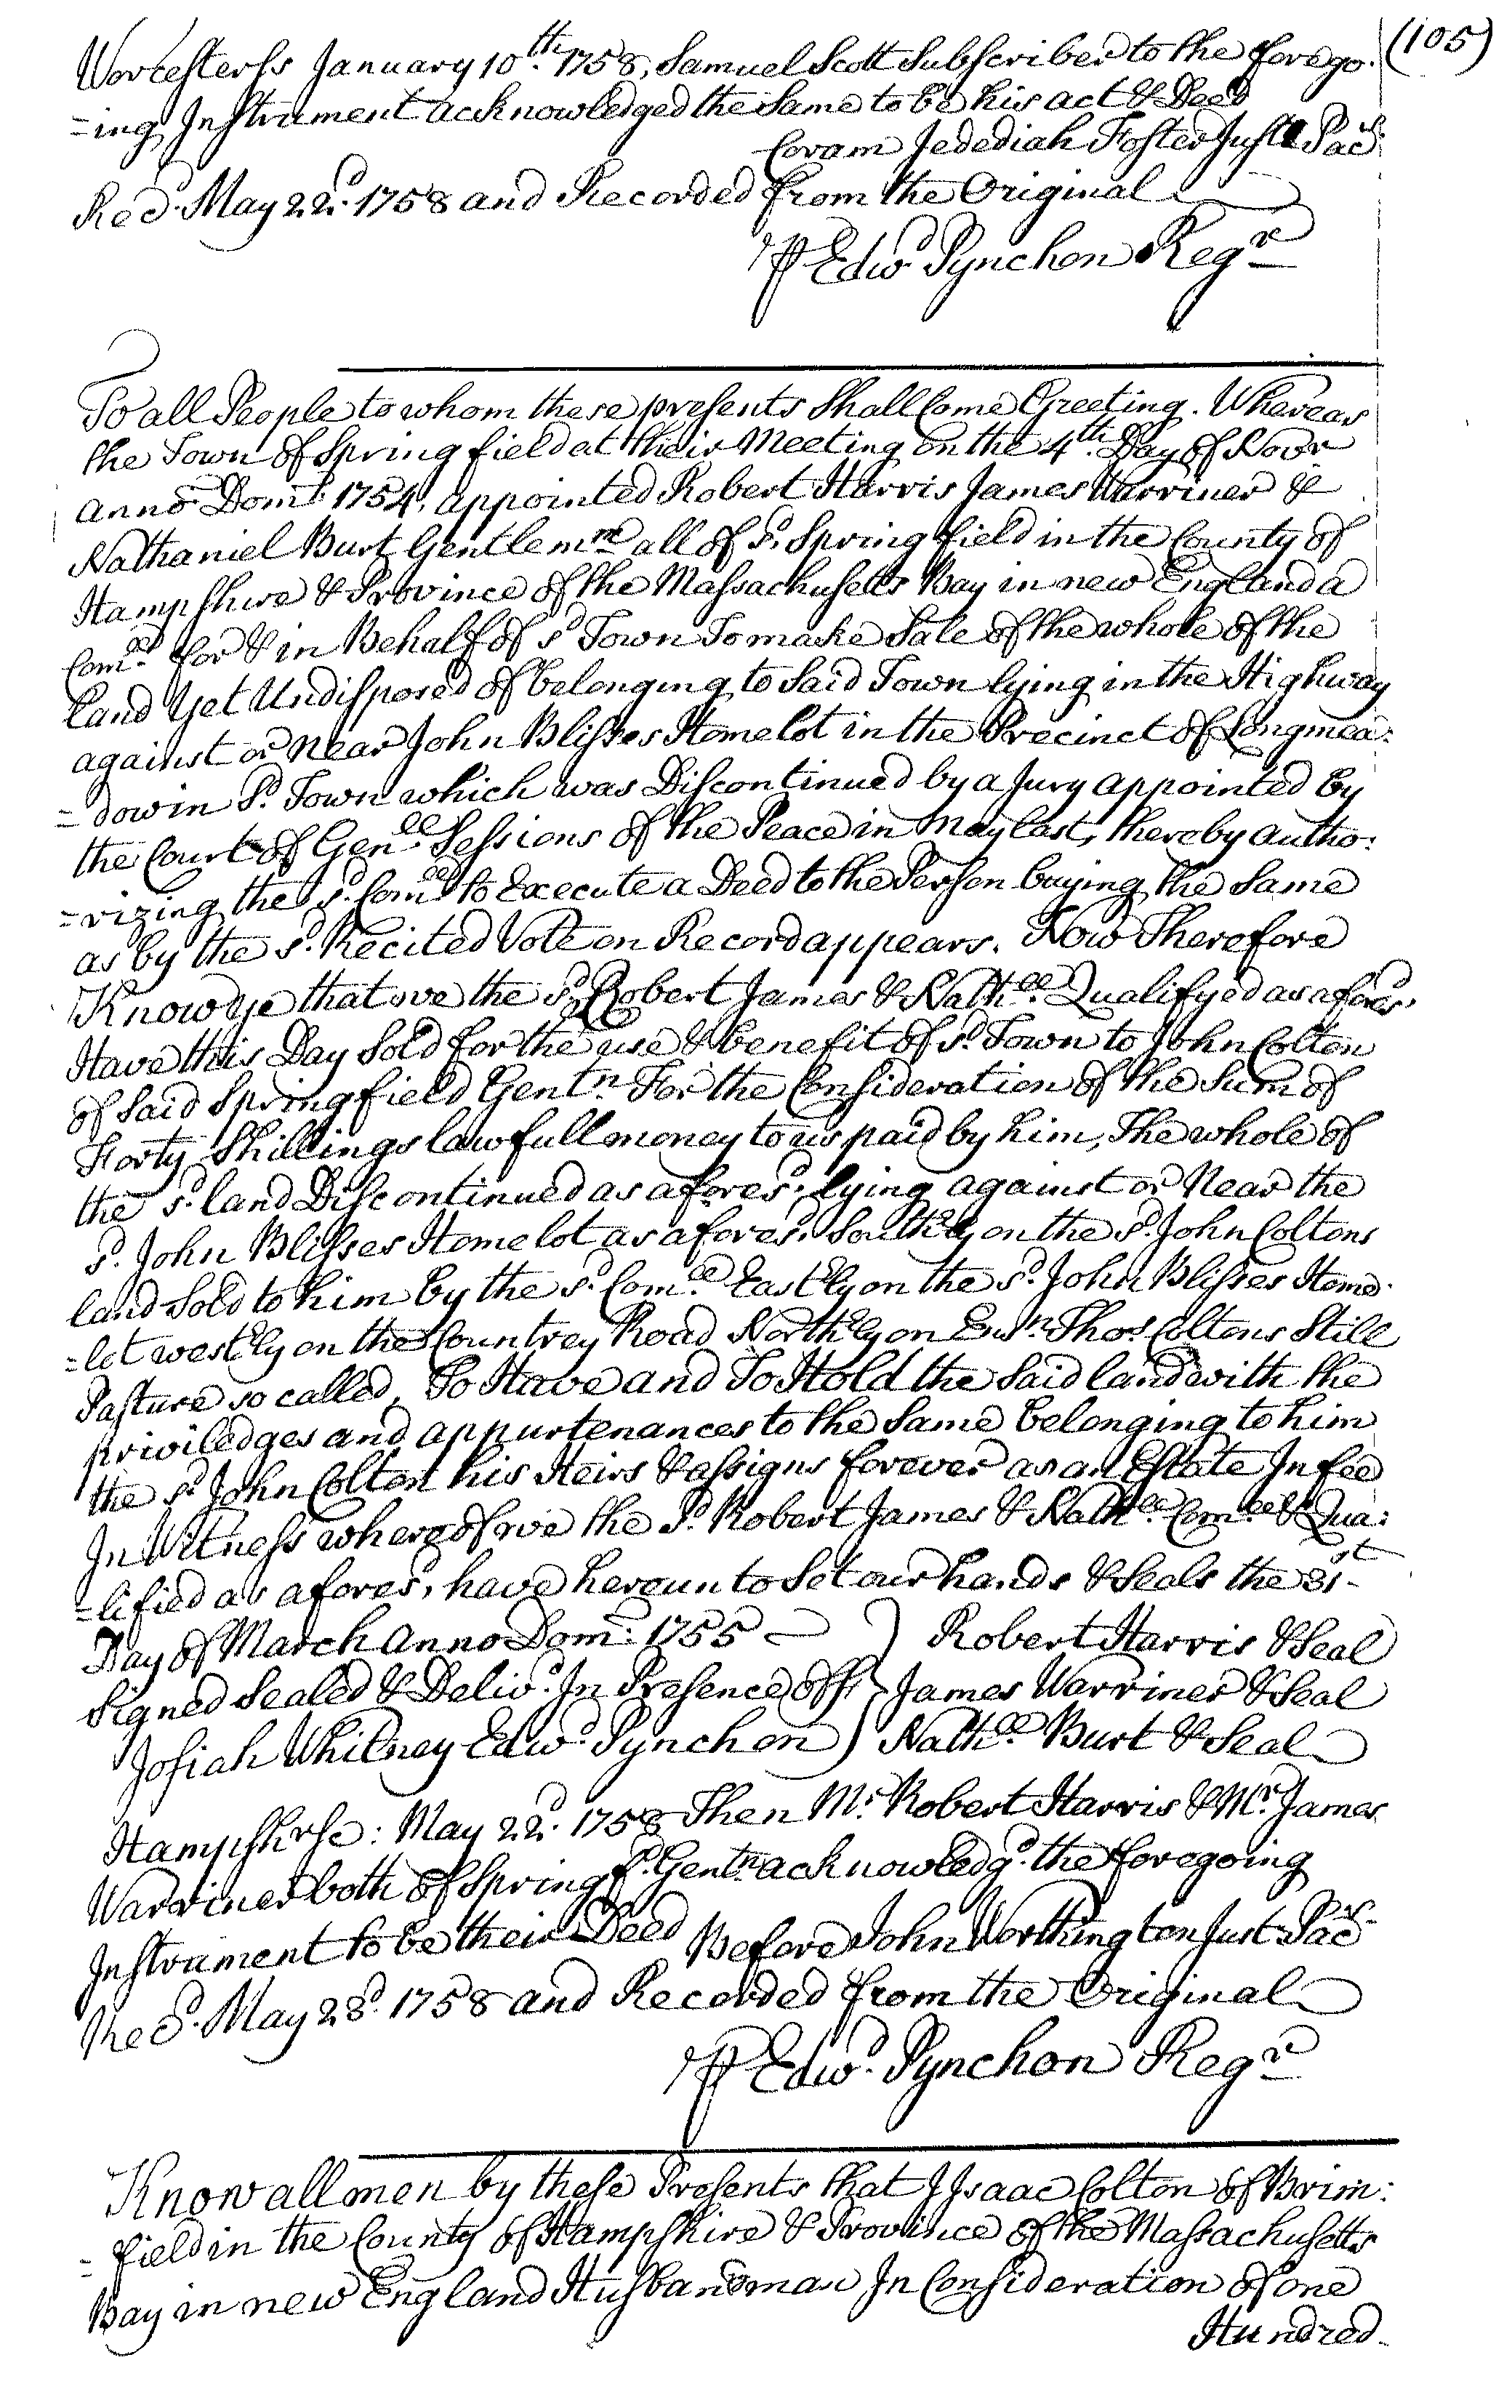 (105)
Worcester ss January 10th. 1758, Samuel Scott Subscriber to the forego-
=ing Instrument acknowledged the Same to be his act & Deed
Coram Jedediah Foster Just Pacs.
Recd. May 22d. 1758 and Recorded from the Original
⅌ Edwd. Pynchon Regr
To all People to whom these presents Shall Come Greeting. Whereas
the Town of Springfield at their Meeting on the 4th. Day of Novr
anno Domi. 1754. appointed Robert Harris James Warriner &
Nathaniel Burt Gentlemn. all of sd. Springfield in the County of
Hampshire & Province of the Massachusetts Bay in new England a
Comee. for & in Behalf of sd Town To make Sale of the whole of the
Land Yet Undisposed of belonging to Said Town lying in the Highway
against or Near John Blisses Homelot in the Precinct of Longmea:
=dow in sd. Town which was Discontinued by a Jury appointed by
the Court of Genll. Sessions of the Peace in May last, thereby autho:
=rizing the sd. Comee. to Execute a Deed to the Person buying the Same
as by the sd. Recited Vote on Record appears. Now Therefore
Know ye that we the sd. Robert James & Nathll. Qualifyed as aforesd.
Have this Day Sold for the use & benefit of sd. Town to John Colton
of Said Springfield Gentn. For the Consideration of the Sum of
Forty Shillings lawfull money to us paid by him, The whole of
the sd. land Discontinued as aforesd. lying against or Near the
sd. John Blisses Homelot as aforesd. Southly on the sd. John Coltons
land Sold to him by the sd. Comee. Eastly on the sd. John Blisses Home-
=lot westly on the Countrey Road Northly on Ensn. Thos. Coltons Still
Pasture so called, To Have and To Hold the Said land with the
priviledges and appurtenances to the Same belonging to him
the sd. John Colton his Heirs & assigns forever as an Estate In fee
In Witness whereof we the sd. Robert James & Nathll. Comee. & Qua:
=lified as aforesd. have hereunto Set our hands & Seals the 31st
Day of March Anno Dom: 1755 Robert Harris & Seal
Signed Sealed & Delivd. In Presence off James Warriner & Seal
Josiah Whitney Edwd. Pynchon Nathll. Burt & Seal
Hampshr Sc: May 22d. 1758 Then Mr. Robert Harris & Mr. James
Warriner both of Springfd. Gentn. acknowledgd. the foregoing
Instrument to be their Deed Before John Worthington Just Pacs.
Recd. May 23d. 1758 and Recorded from the Original
⅌ Edwd. Pynchon Regr
Know all men by these Presents that I Isaac Colton of Brim:
=field in the County of Hampshire & Province of the Massachusetts
Bay in new England Husbandman In Consideration of one
Hundred